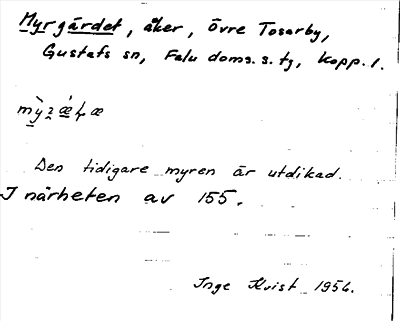 Myrgärdet, åker, Övre Tosarby,
Gustafs sn, Falu doms. s. tg, Kopp. l.
Den tidigare myren är utdikad.
I närheten av 155.
Inge Kvist 1954.